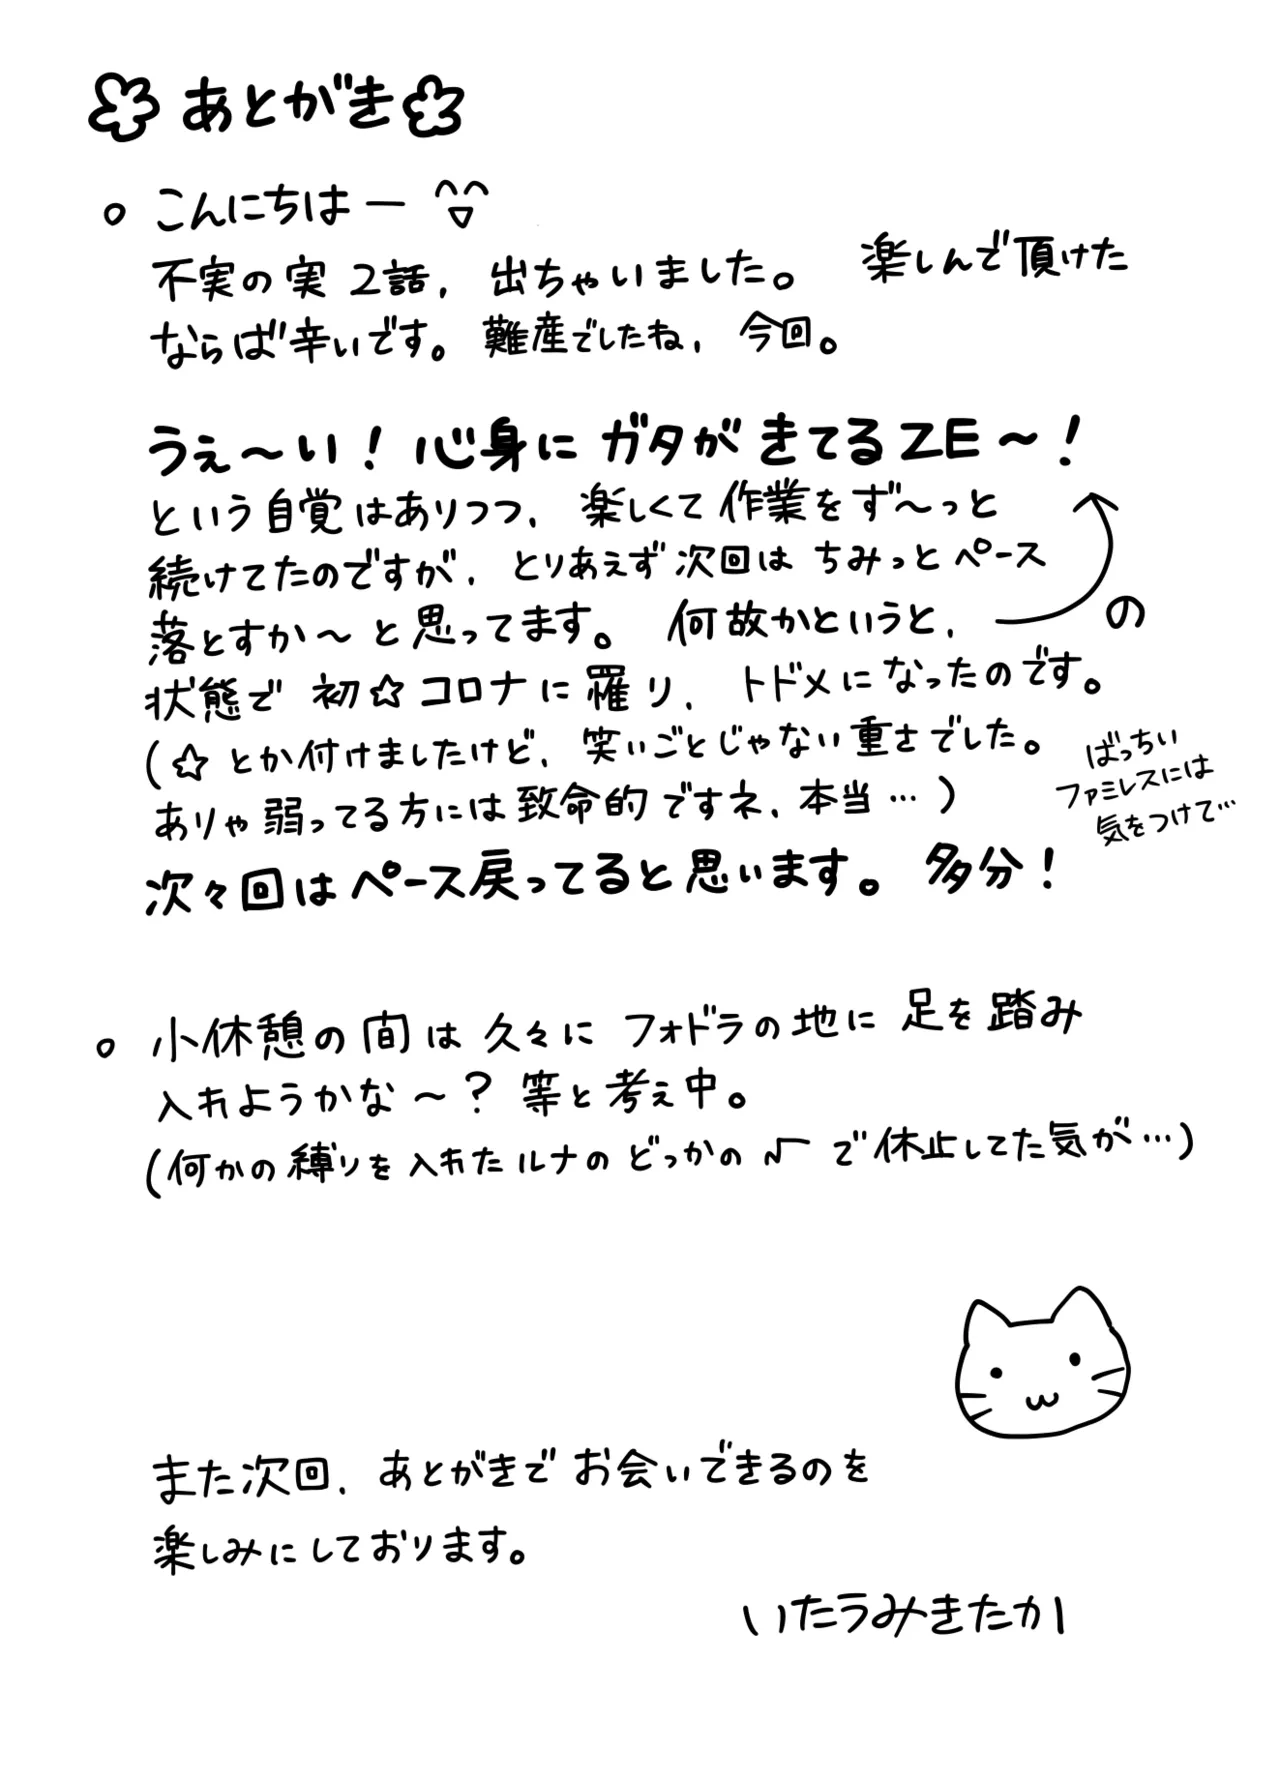 あとがき
こんにちはー
不実の実 2話、出ちゃいました。 楽しんで頂けた
ならば幸いです。難産でしたね、今回。
うぇ〜い！心身にガタがきてるZE〜！
という自覚はありつつ、楽しくて作業をず〜っと
続けてたのですが、とりあえず次回はちみっとペース
落とすか〜と思ってます。 何故かというと、 の
状態で初☆コロナに罹り、トドメになったのです。
(☆とか付けましたけど、笑いごとじゃない重さでした。
ありゃ弱ってる方には致命的ですネ、本当…)
ばっちい
ファミレスには
気をつけて…
次々回はペース戻ってると思います。多分！
小休憩の間は久々にフォドラの地に足を踏み
入れようかな〜？等と考え中。
(何かの縛りを入れたルナのどっかの√で休止してた気が…)
また次回、あとがきでお会いできるのを
楽しみにしております。
いたうみきたか